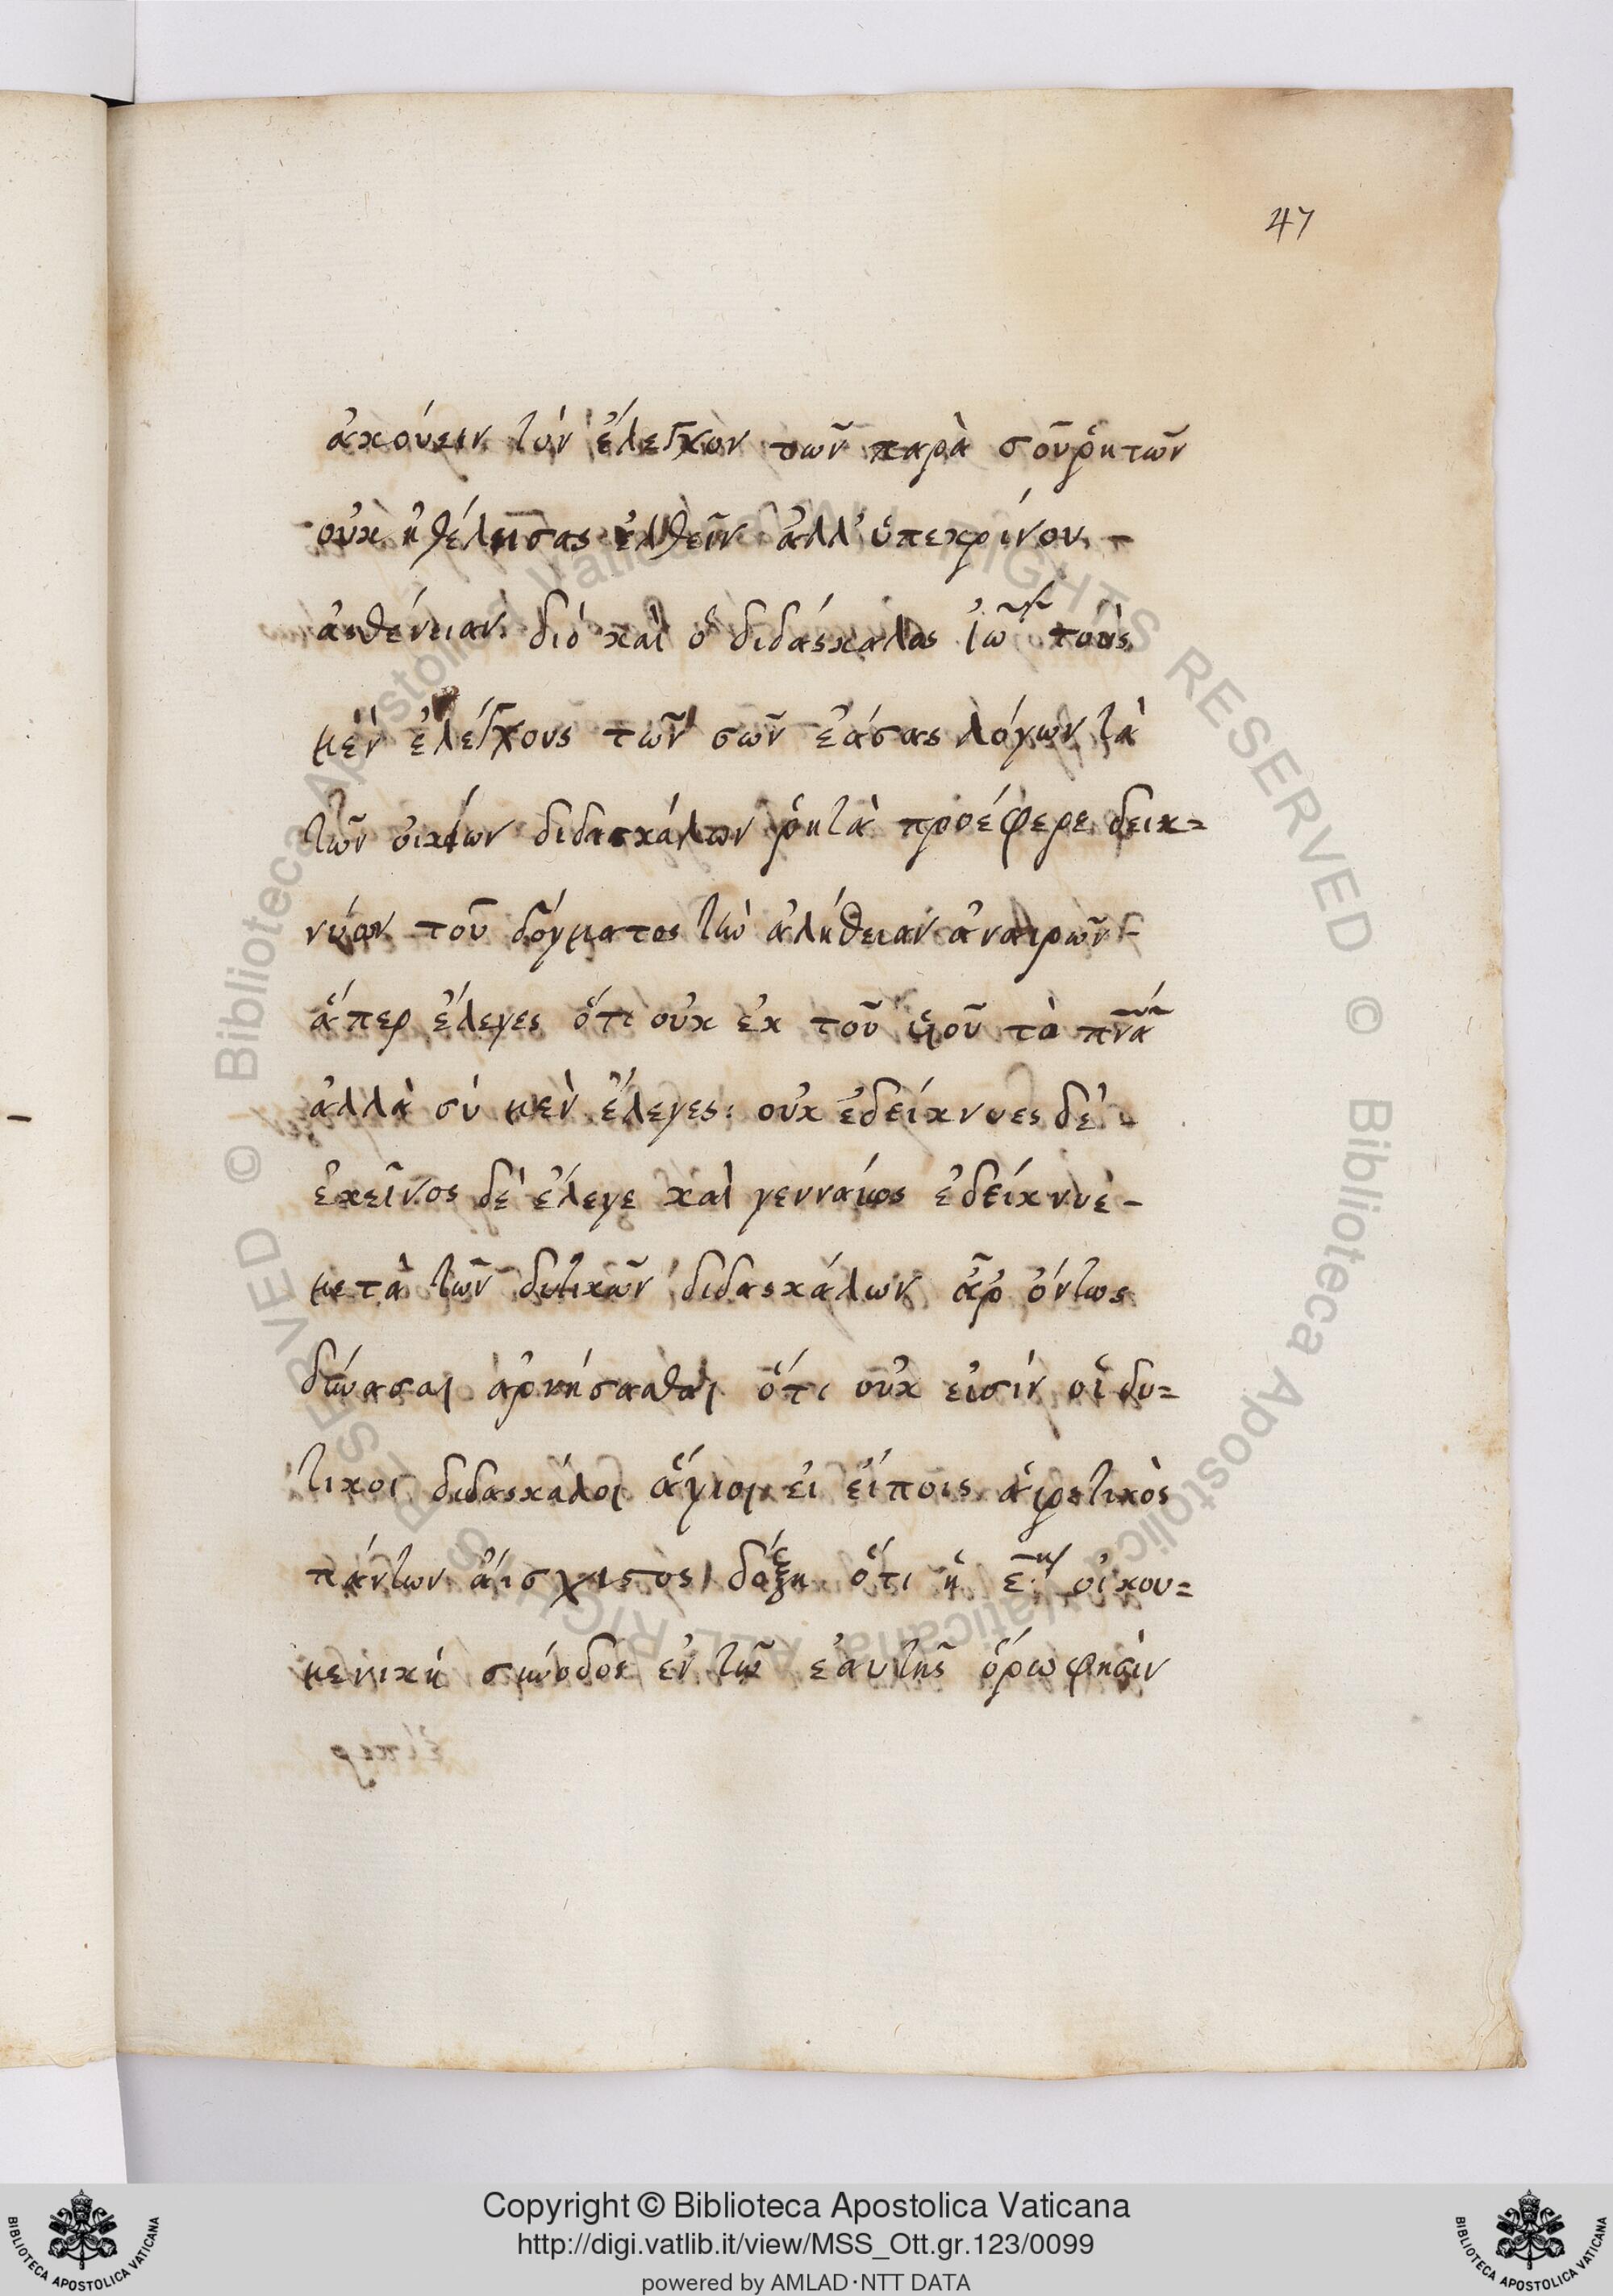 47
ἀκούειν τὸν ἔλεγχον τῶν παρὰ σοῦ ῥητῶν
οὐκ ἠθέλησας ἐλθεῖν ἀλλ' ὑπεκρίνου –
ἀσθένειαν διὸ καὶ ὁ διδάσκαλος ἰω τοὺς
μὲν ἐλέγχους τῶν σῶν ἐάσας λόγων τὰ
τῶν οἰκείων διδασκάλων ῥητὰ προέφερε δεικ=
νύων τοῦ δόγματος τὴν ἀλήθειαν ἀναιρῶν –
ἅπερ ἔλεγες ὅτι οὐκ ἐκ τοῦ υἱοῦ τὸ πνᾶ
ἀλλὰ σὺ μὲν ἔλεγες: οὐκ ἐδείκνυες δέ
ἐκεῖνος δὲ ἔλεγε καὶ γενναίως ἐδείκνυε –
μετὰ τῶν δυτικῶν διδασκάλων ἆρ ὄντως
δύνασαι ἀρνήσασθαι ὅτι οὐκ εἰσὶν οἱ δυ=
τικοὶ διδασκάλοι ἅγιοι εἰ εἴποις αἱρετικὸς
πάντων αἴσχιστος δόξῃ ὅτι ἡ ε.η οἰκου=
μενικὴ σύνοδος ἐν τῶ ἑαυτῆς ὅρω φησὶν
Copyright © Biblioteca Apostolica Vaticana
http://digi.vatlib.it/view/MSS_Ott.gr.123/0099
powered by AMLAD·NTT DATA
BIBLIOTECA APOSTOLICA VATICANA
BIBLIOTECA APOSTOLICA VATICANA
© Biblioteca Apostolica Vaticana ALL RIGHTS RESERVED
© Biblioteca Apostolica Vaticana ALL RIGHTS RESERVED